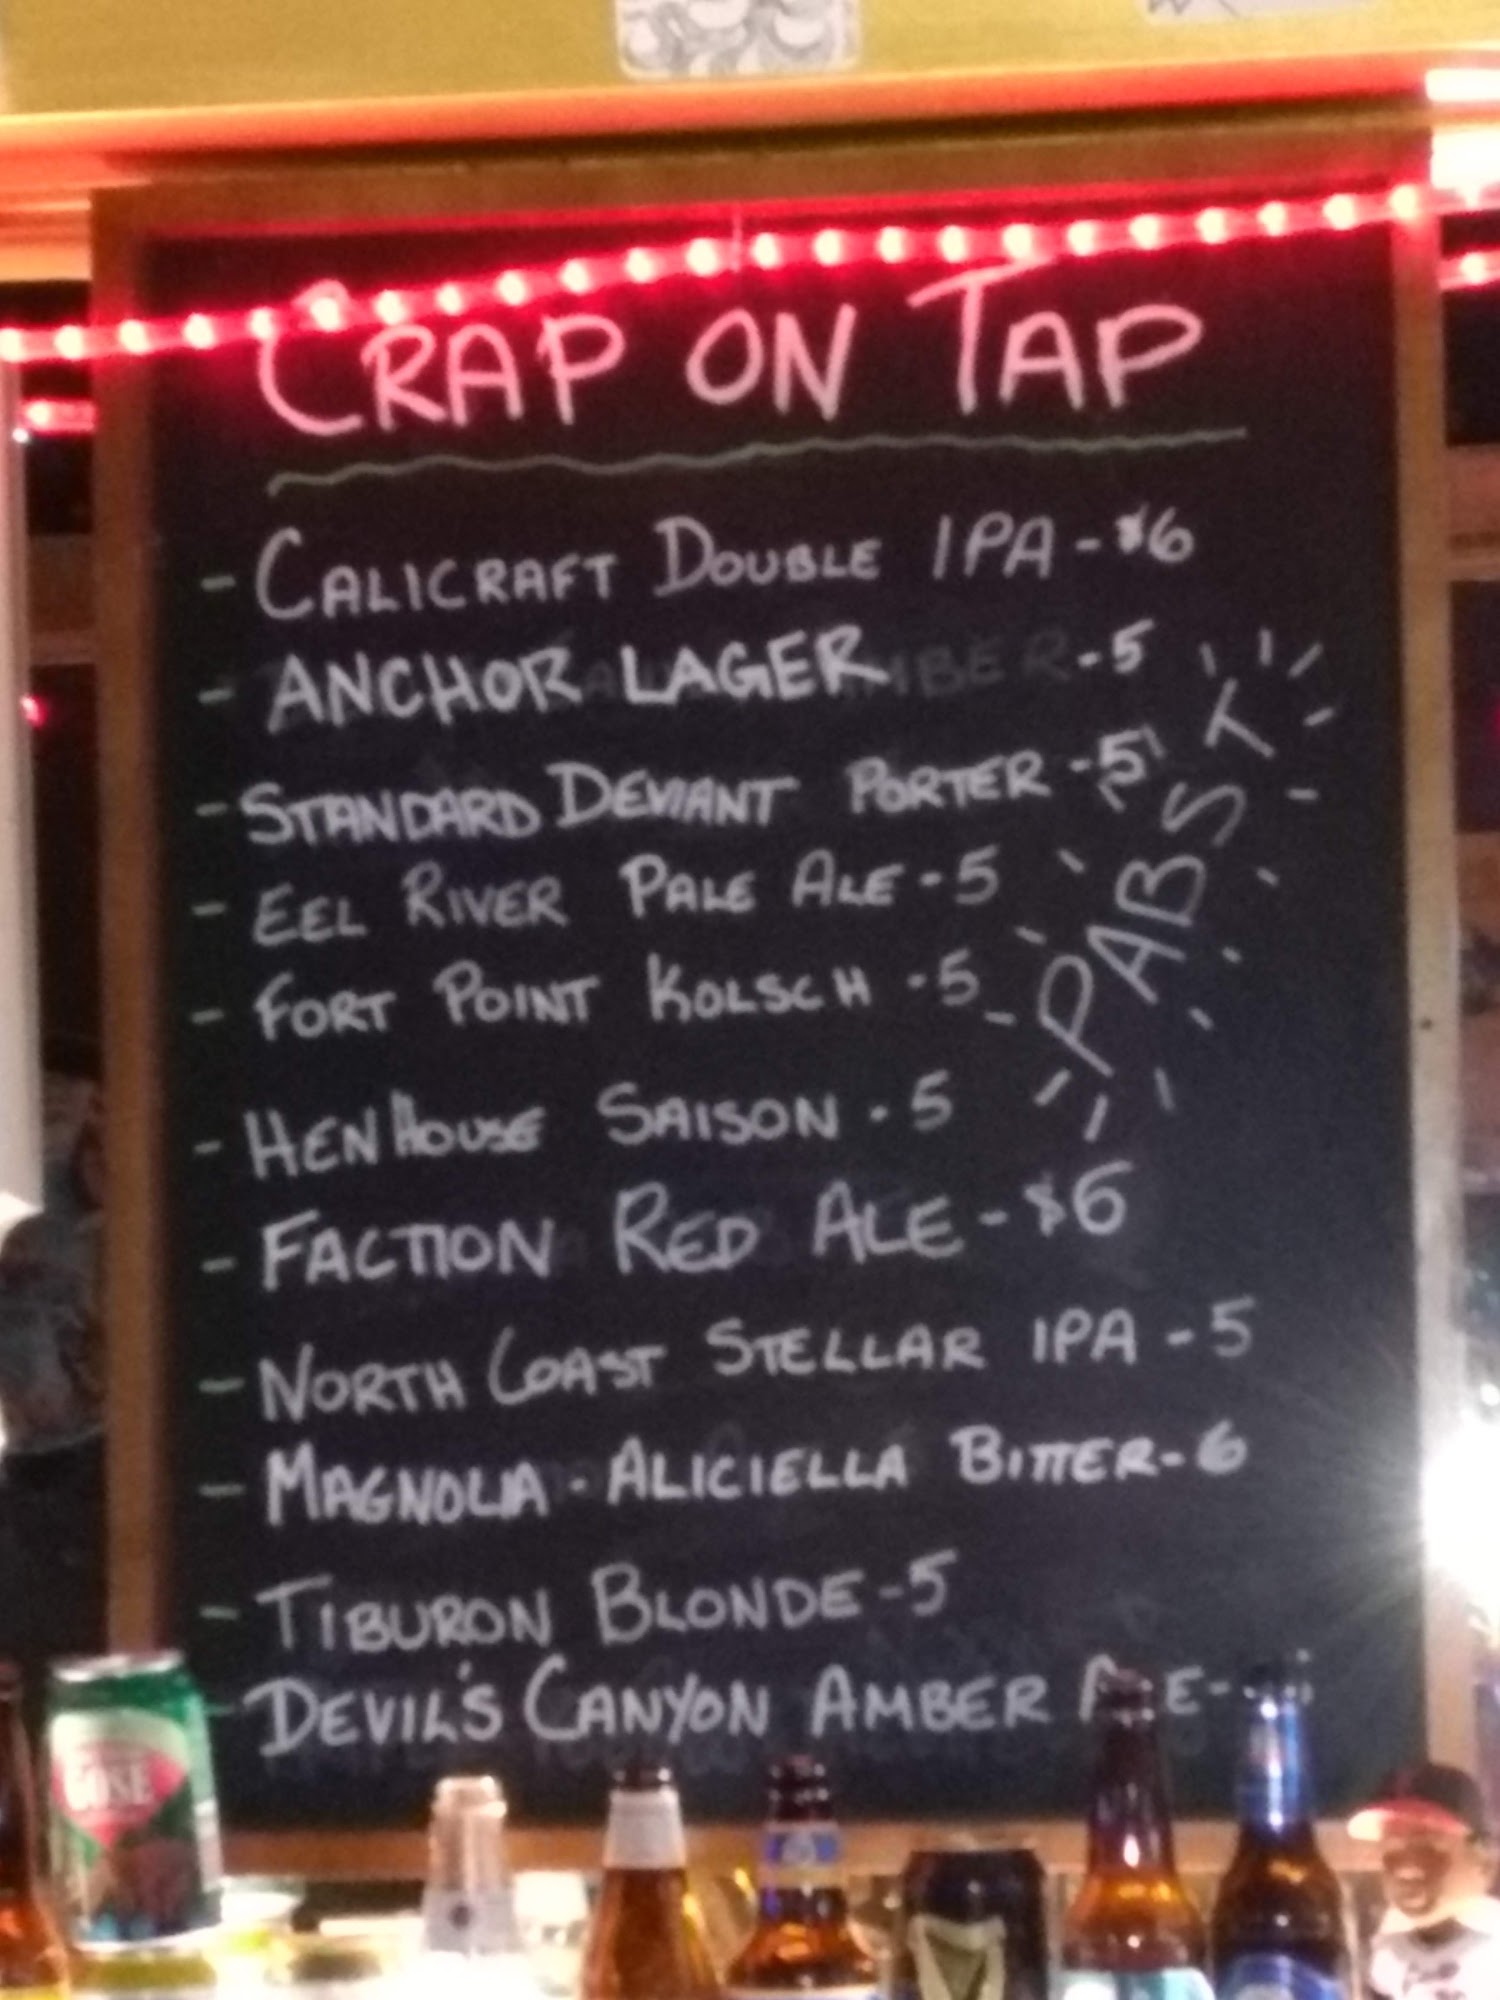 CRAP ON TAP
- CALICRAFT DOUBLE IPA - $6
- ANCHOR LAGER - 5
- STANDARD DEVIANT PORTER - 5
- EEL RIVER PALE ALE - 5
- FORT POINT KOLSCH - 5
- HENHOUSE SAISON - 5
- FACTION RED ALE - $6
- NORTH COAST STELLAR IPA - 5
- MAGNOLIA - ALICIELLA BITTER - 6
- TIBURON BLONDE - 5
- DEVIL'S CANYON AMBER
PABST